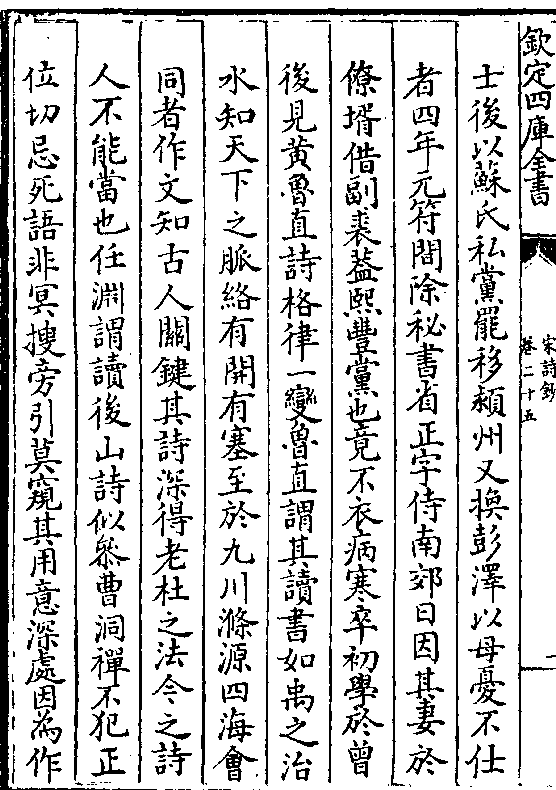 欽定四庫全書
宋詩鈔
卷二十五
一
士後以蘇氏私黨罷移潁州又換彭澤以母憂不仕
者四年元符間除秘書省正字侍南郊日因其妻於
僚壻借副裘葢熙豐黨也竟不衣病寒卒初學於曾
後見黄魯直詩格律一變魯直謂其讀書如禹之治
水知天下之脈絡有開有塞至於九川滌源四海會
同者作文知古人關鍵其詩深得老杜之法今之詩
人不能當也任淵謂讀後山詩似叅曹洞禪不犯正
位切忌死語非冥搜旁引莫窺其用意深處因為作